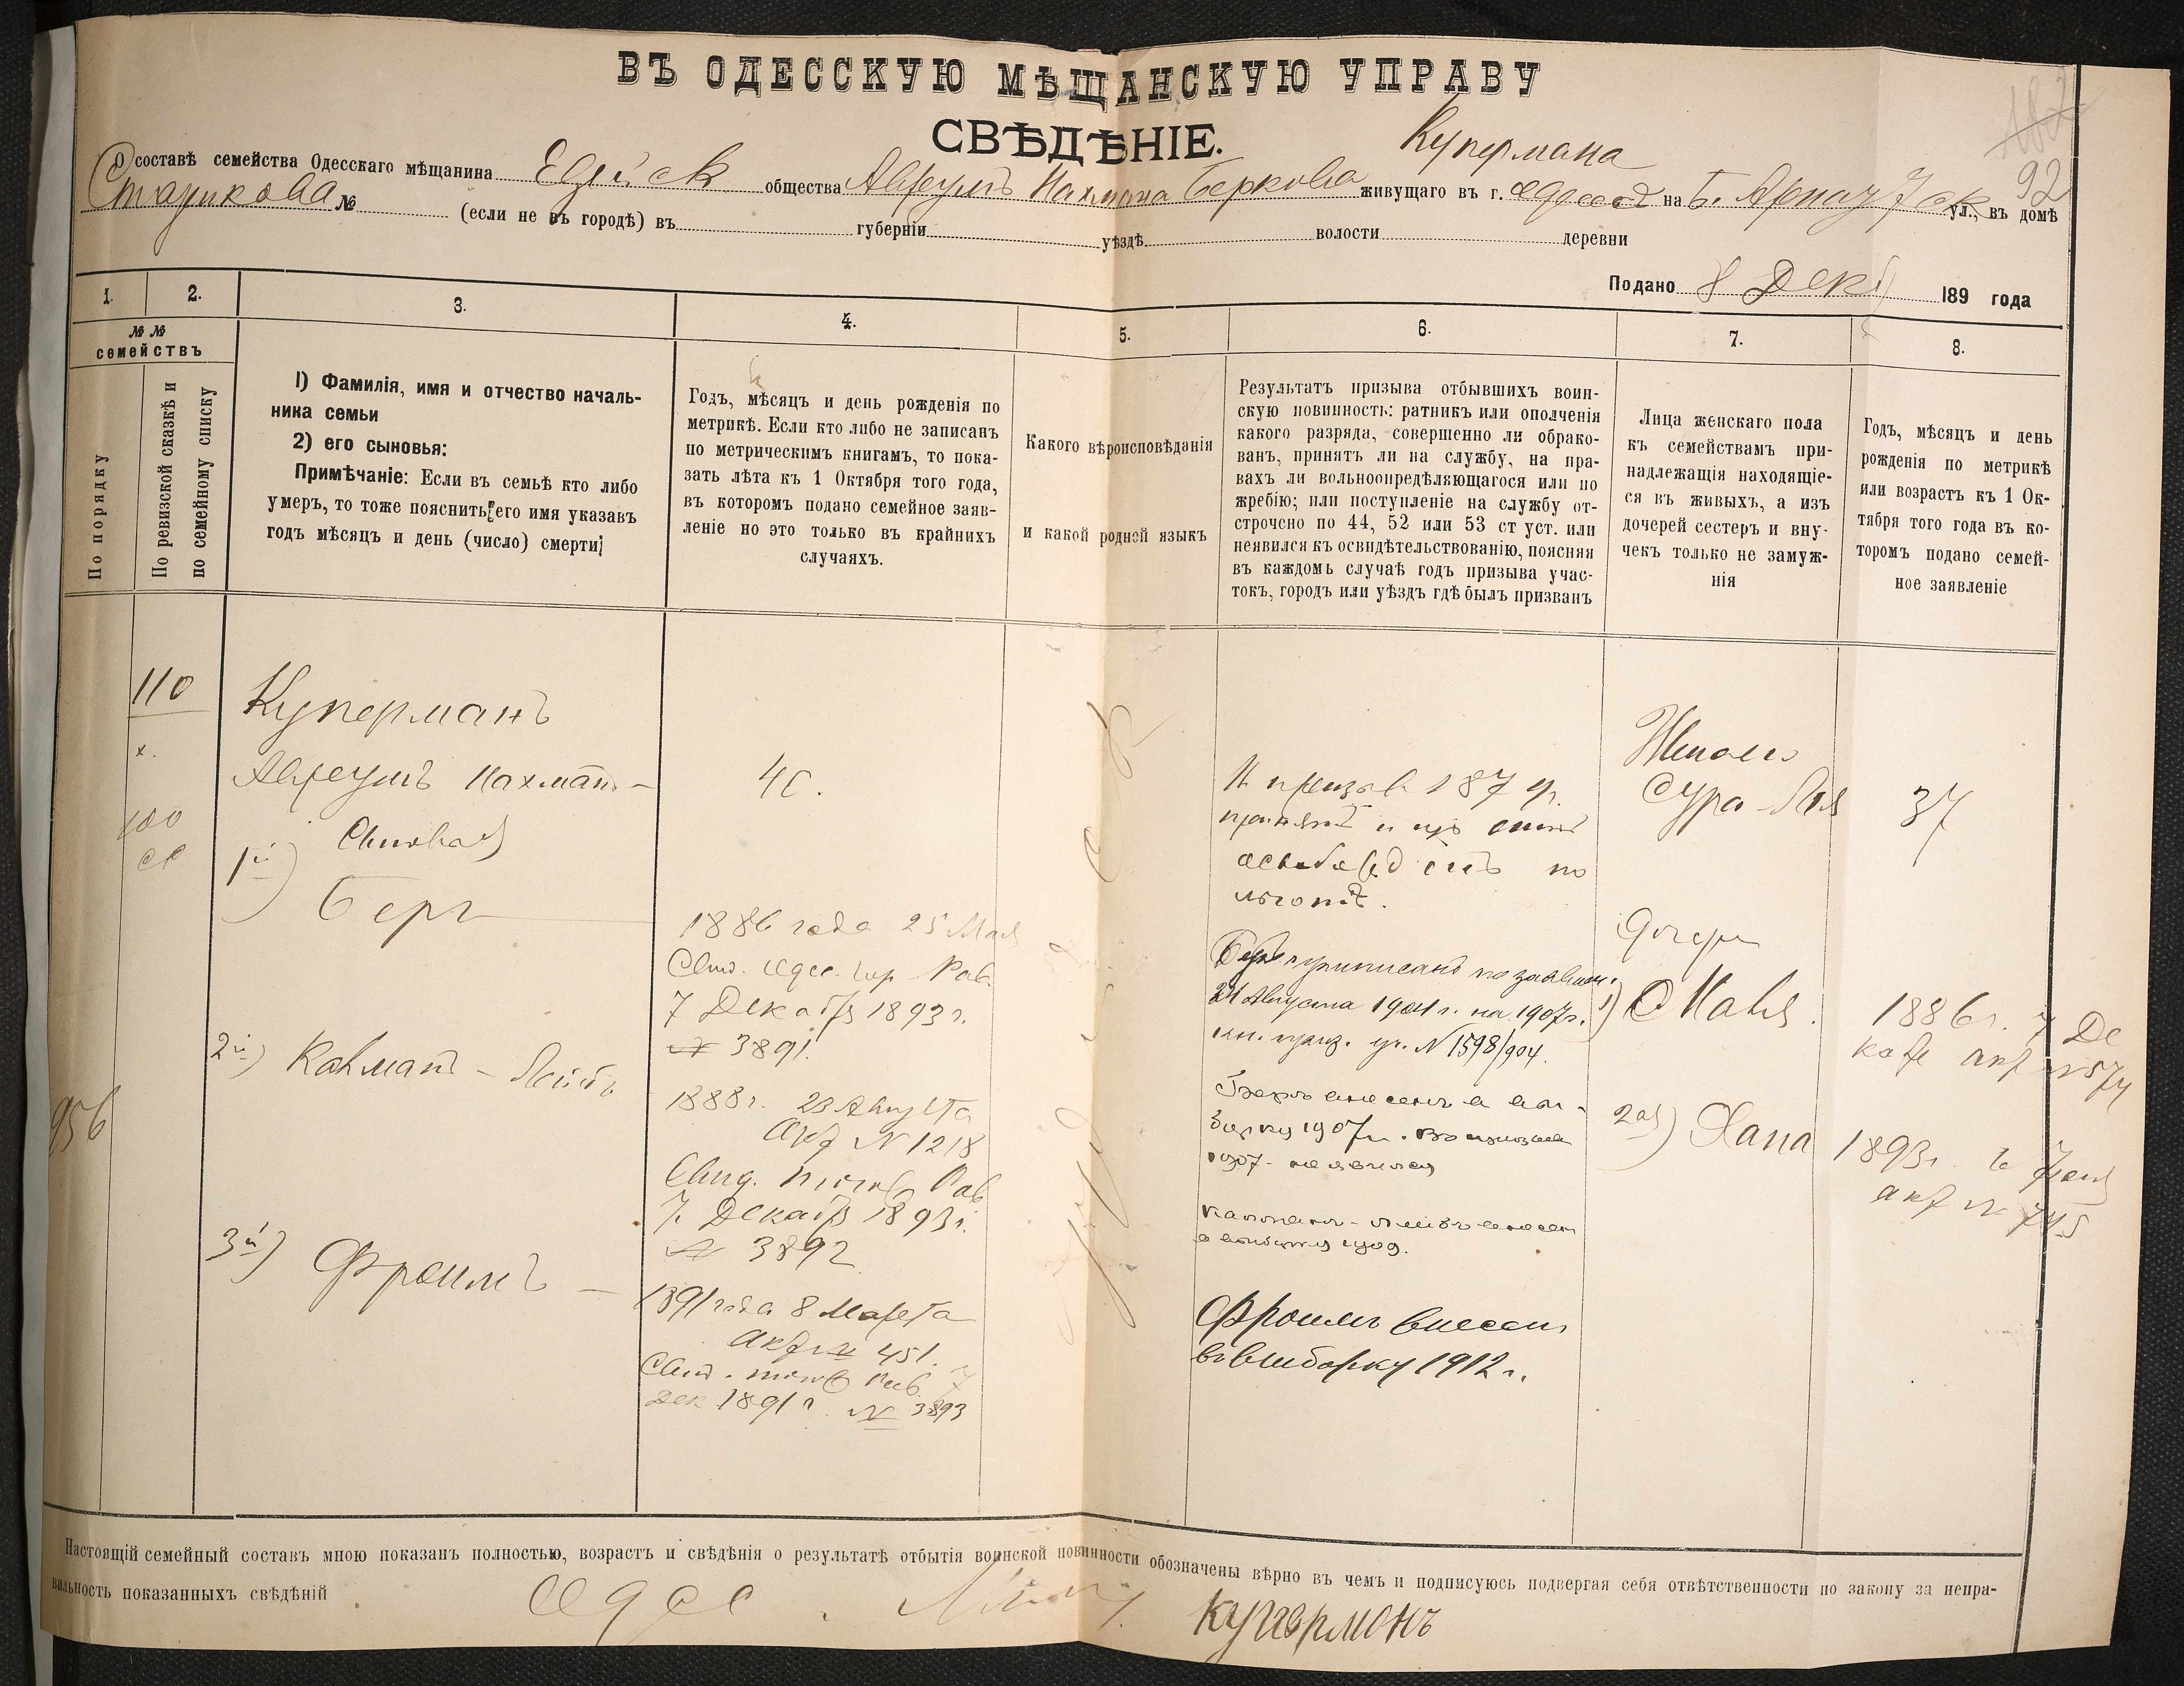 ВЪ ОДЕССКУЮ МѢЩАНСКУЮ УПРАВУ
СВѢДѢНІЕ.
Купермана
92
О составѣ семейства Одесскаго мѣщанина общества Аврумъ Нахмана Беркова живущаго въ г. Одессѣ на Б. Арнаутск ул., въ домѣ
Старикова № (если не въ городѣ) въ губерніи уѣздѣ волости деревни
Подано 8 Декб 189 года
1. 2. 3. 4. 5. 6. 7. 8.
№ №
семействъ
По порядку
По ревизской сказкѣ и
по семейному списку
1) Фамилія, имя и отчество началь-
ника семьи
2) его сыновья:
Примѣчаніе: Если въ семьѣ кто либо
умеръ, то тоже пояснить его имя указавъ
годъ мѣсяцъ и день (число) смерти
Годъ, мѣсяцъ и день рожденія по
метрикѣ. Если кто либо не записанъ
по метрическимъ книгамъ, то пока-
зать лѣта къ 1 Октября того года,
въ которомъ подано семейное заяв-
леніе но это только въ крайнихъ
случаяхъ.
Какого вѣроисповѣданія
и какой родной языкъ
Результатъ призыва отбывшихъ воин-
скую повинность: ратникъ или ополченія
какого разряда, совершенно ли обрако-
ванъ, принятъ ли на службу, на пра-
вахъ ли вольноопредѣляющагося или по
жребію; или поступленіе на службу от-
строчено по 44, 52 или 53 ст уст. или
неявился къ освидѣтельствованію, поясняя
въ каждомъ случаѣ годъ призыва учас-
токъ, городъ или уѣздъ гдѣ былъ призванъ
Лица женскаго пола
къ семействамъ при-
надлежащія находящіе-
ся въ живыхъ, а изъ
дочерей сестеръ и вну-
чекъ только не замуж-
нія
Годъ, мѣсяцъ и день
рожденія по метрикѣ
или возрастъ къ 1 Ок-
тября того года въ ко-
торомъ подано семей-
ное заявленіе
110
956
Куперманъ
Аврумъ Нахманъ -
Сыновья
1й) Беръ
2й) Калманъ - Лейбъ
3й) Фроимъ -
40.
1886 года 25 Мая
Свид. Одес. гор Рав.
7 Декабря 1893 г.
№ 3891.
1888 г. 23 Августа
акт № 1218
Свид. того Рав
7 Декабря 1893 г.
№ 3892
1891 года 8 Марта
акт № 451.
Свид. того Рав. 7
Дек 1891 г. № 3893
призыв 187 г.
принят и
освобожденъ по
льготѣ.
Беръ приписанъ по заявлен.
24 Августа 1904 г. на 1907 г.
уч. № 1598/904.
Беръ внесенъ в вы-
борку 1907 г. Во призыв
1907 - не явился
Калманъ - Лейбъ внесен
в выборку 1909.
Фроимъ внесенъ
въ выборку 1912 г.
Жена
Сура - Лея
37
Дочери
1) Маня.
1886 г. 7 Де
кабр акт № 574
2ая) Хана
1893 г.
акт № 745
Настоящій семейный составъ мною показанъ полностью, возрастъ и свѣдѣнія о результатѣ отбытія воинской повинности обозначены вѣрно въ чемъ и подписуюсь подвергая себя отвѣтственности по закону за непра-
вильность показанныхъ свѣдѣній Одес. Куперманъ